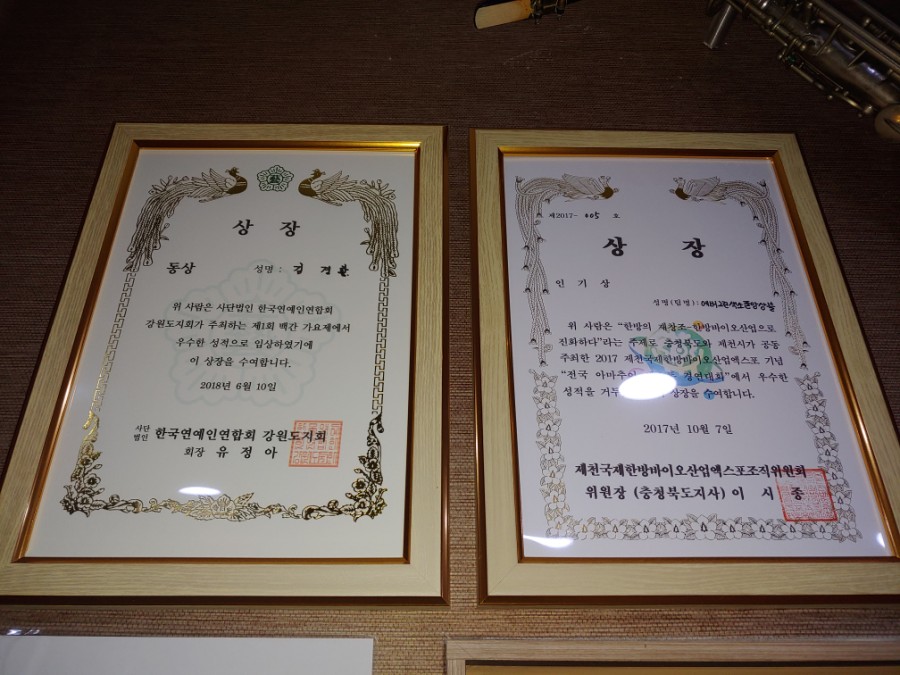 상 장
동상
성명 : 김 경 환
위 사람은 사단법인 한국연예인연합회
강원도지회가 주최하는 제1회 백간 가요제에서
우수한 성적으로 입상하였기에
이 상장을 수여합니다.
2018년 6월 10일
사단
법인 한국연예인연합회 강원도지회
회장 유 정 아
제2017- 005 호
상 장
인 기 상
성명(팀명) : 에버그린색소폰앙상블
위 사람은 "한방의 재창조-한방바이오산업으로
진화하다"라는 주제로 충청북도와 제천시가 공동
주최한 2017 제천국제한방바이오산업엑스포 기념
"전국 아마추어 경연대회"에서 우수한
성적을 거두 상장을 수여합니다.
2017년 10월 7일
제천국제한방바이오산업엑스포조직위원회
위원장 (충청북도지사) 이 시 종